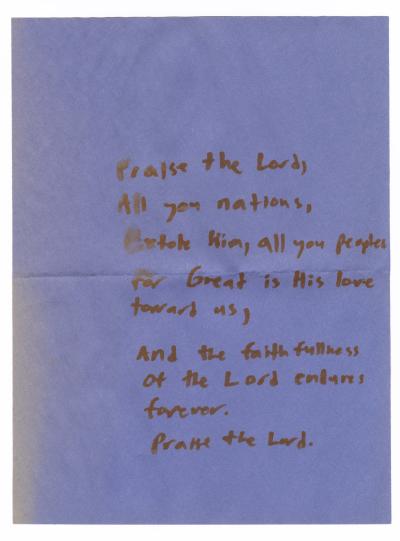 Praise the Lord,
All you nations,
Extole Him, all you peoples
For Great is His love
toward us,
And the faithfullness
of the Lord endures
forever.
Praise the Lord.